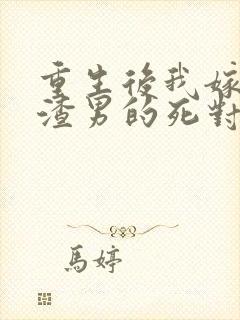 重生後我嫁
渣男的死對
馬婷